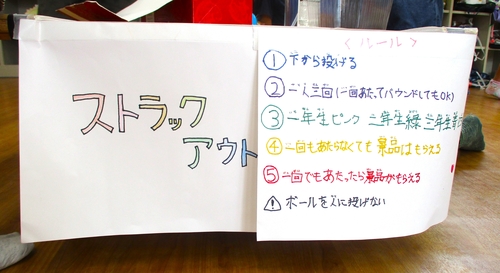 ストラック
アウト
<ルール>
① 下から投げる
② 一人三回(一回あたってバウンドしてもOK)
③ 一年生ピンク 二年生緑 三年生
④ 一回もあたらなくても景品はもらえる
⑤ 一回でもあたったら景品がもらえる
⚠ ボールを人に投げない